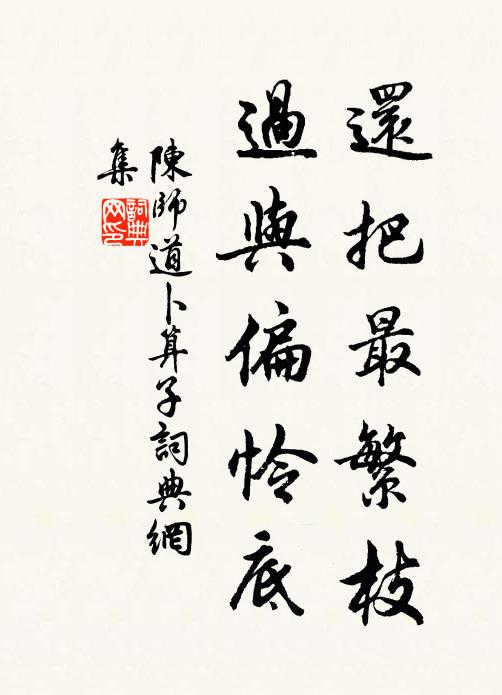 還把最繁枝
過與偏怜底
陳師道卜算子詞典網
集
詞典
网印